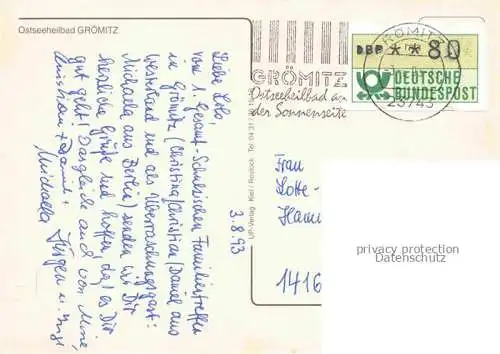 Ostseeheilbad GRÖMITZ
Liebe Lolo,
vom 1. Gesamt-Schulzischen Familientreffen
in Grömitz (Christina/Christian/Daniel aus
Westerland und als Überraschungsgast:
Michaela aus Berlin) senden wir Dir
herzliche Grüße und hoffen, daß es Dir
gut geht! Desgleichen auch von
Christiane + Daniel,
Michaela Jürgen u. Inge
3.8.93
UP-Verlag Kiel / Rostock Tel. 04 31 /
GRÖMITZ
Ostseeheilbad an
der Sonnenseite
GRÖMITZ
23743
DBP * * 80
DEUTSCHE
BUNDESPOST
Frau
Lotte-
1416
privacy protection
Datenschutz